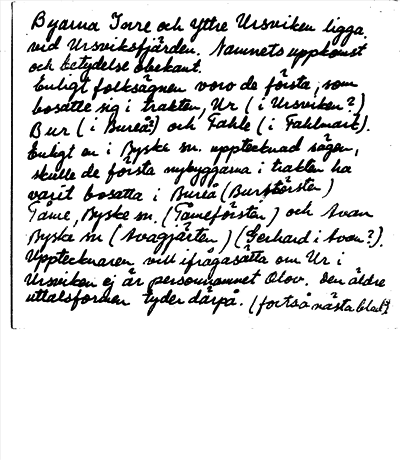 Byarna Inre och Yttre Ursviken ligga
vid Ursviksfjärden. Namnets uppkomst
och betydelse obekant.
Enligt folksägnen voro de första, som
bosatte sig i trakten, Ur (i Ursviken?)
Bur (i Bureå?) och Fahle (i Fahlmark).
Enligt en i Byske sn. upptecknad sägen,
skulle de första nybyggarna i trakten ha
varit bosatta i Bureå (Burbörsten)
Tåme, Byske sn. (Tåmeförsten) och Avan
Byske sn (Avagjärten) (Gerhard i Avan?).
Upptecknaren vill ifrågasätta om Ur i
Ursviken ej är personnamnet Olov. Den äldre
uttalsformen tyder därpå. (forts å nästa blad)